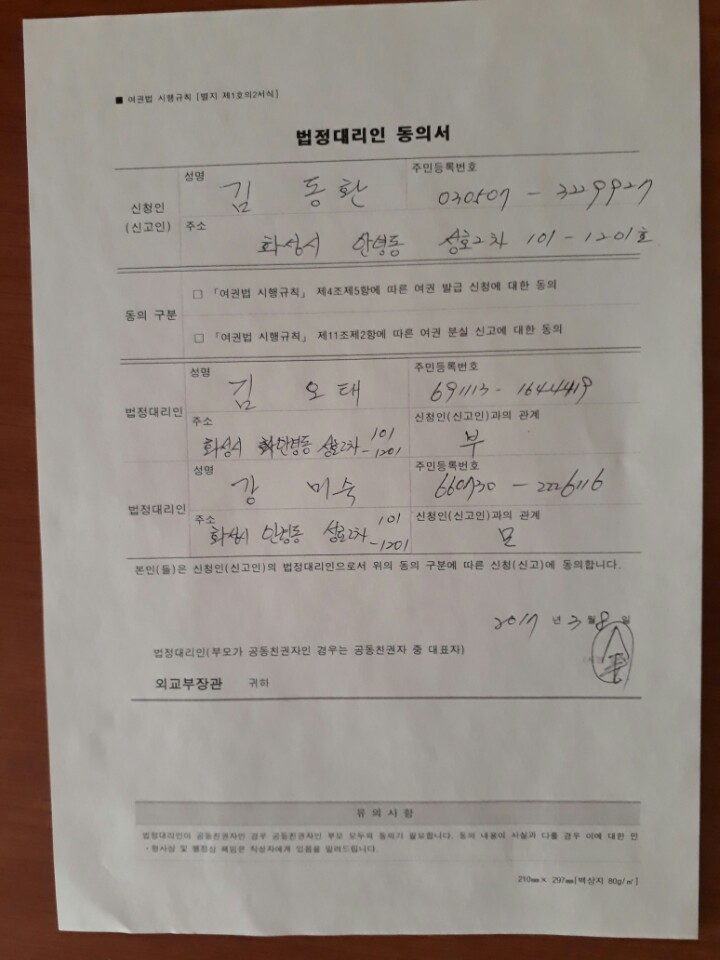 ■ 여권법 시행규칙 [별지 제1호의2서식]
법정대리인 동의서
신청인
(신고인)
성명
김 동환
주민등록번호
030507 - 3229927
주소
화성시 안녕동 성호2차 101 - 1201호
동의 구분
□ 「여권법 시행규칙」 제4조제5항에 따른 여권 발급 신청에 대한 동의
□ 「여권법 시행규칙」 제11조제2항에 따른 여권 분실 신고에 대한 동의
법정대리인
성명
김 오태
주민등록번호
691113 - 1644419
주소
화성시 안녕동 성호2차 101
-1201
신청인(신고인)과의 관계
부
법정대리인
성명
강 미숙
주민등록번호
660730 - 2226116
주소
화성시 안녕동 성호2차 101
-1201
신청인(신고인)과의 관계
모
본인(들)은 신청인(신고인)의 법정대리인으로서 위의 동의 구분에 따른 신청(신고)에 동의합니다.
2017 년 3 월 8 일
법정대리인(부모가 공동친권자인 경우는 공동친권자 중 대표자)
외교부장관 귀하
유의사항
법정대리인이 공동친권자인 경우 공동친권자인 부모 모두의 동의가 필요합니다. 동의 내용이 사실과 다를 경우 이에 대한 민
·형사상 및 행정상 책임은 작성자에게 있음을 알려드립니다.
210㎜× 297㎜[백상지 80g/㎡]